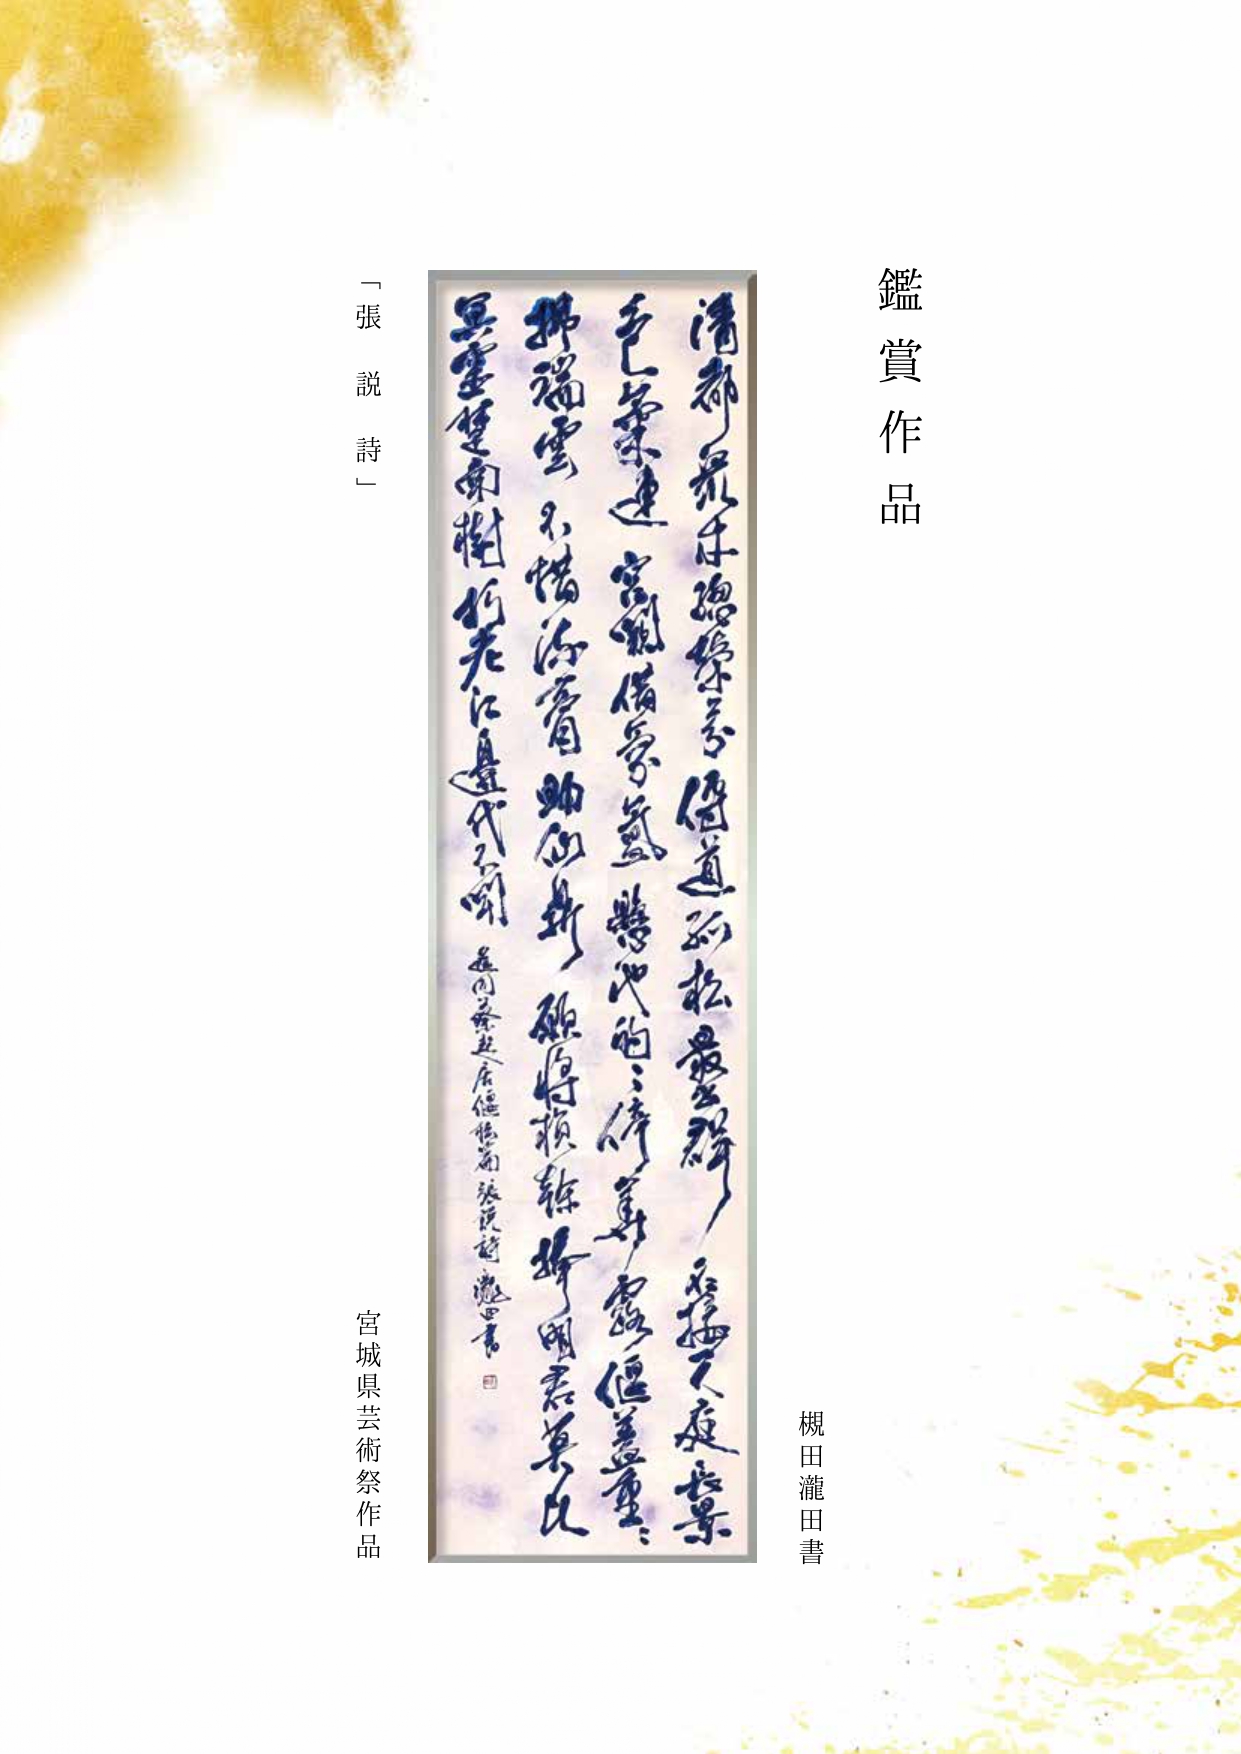 鑑賞作品
槻田瀧田書
清都眾木總榮芬傳道孤松最出群名接天庭長景
色氣連宮闕借氛氳懸池的々停華露偃蓋重々
拂瑞雲不惜流膏助仙鼎願將楨幹捧明君莫比
冥靈楚南樹朽老江邊代不聞遥同蔡起居偃松篇張説詩瀧田書
「張説詩」
宮城県芸術祭作品